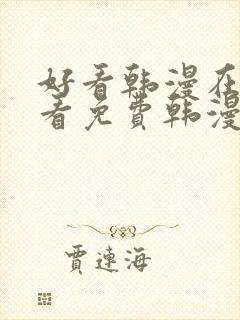 好看韩漫在
看免费韩漫
贾连海